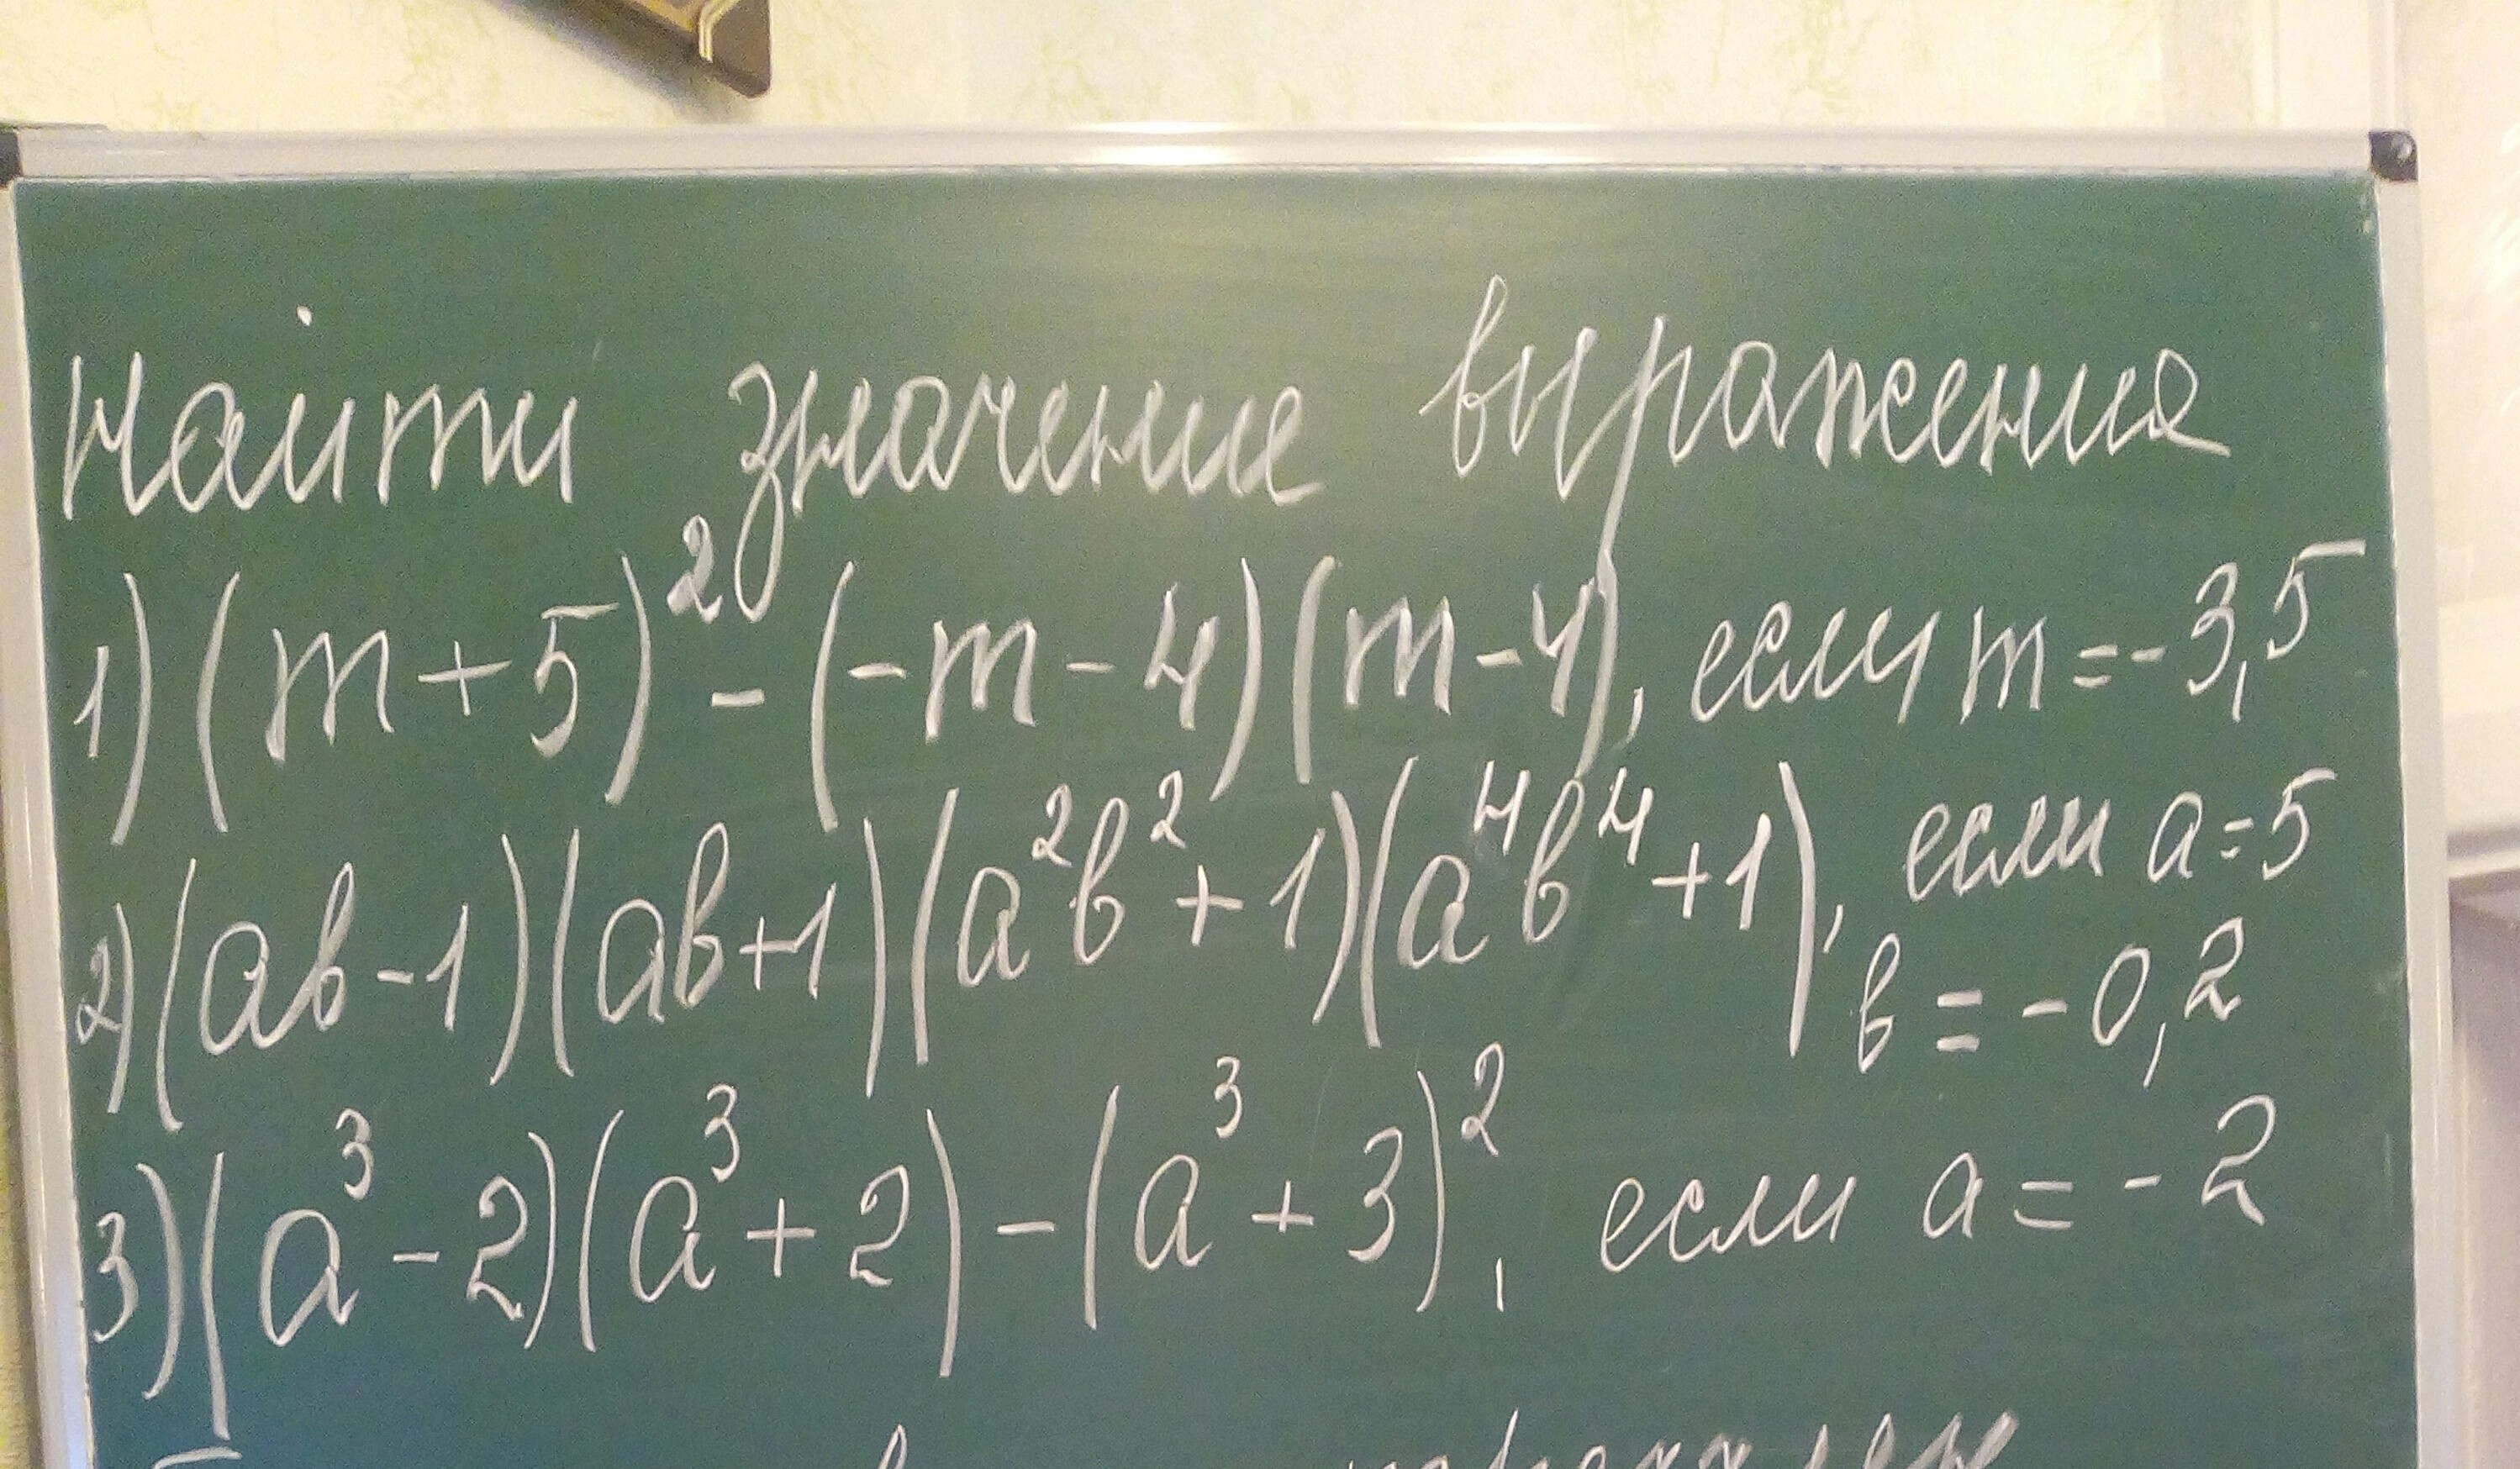 Найти значение выражения
1) (m+5)² - (-m-4)(m-4), если m = -3,5
2) (ab-1)(ab+1)(a²b²+1)(a⁴b⁴+1), если a=5
b = -0,2
3) (a³-2)(a³+2) - (a³+3)², если a = -2